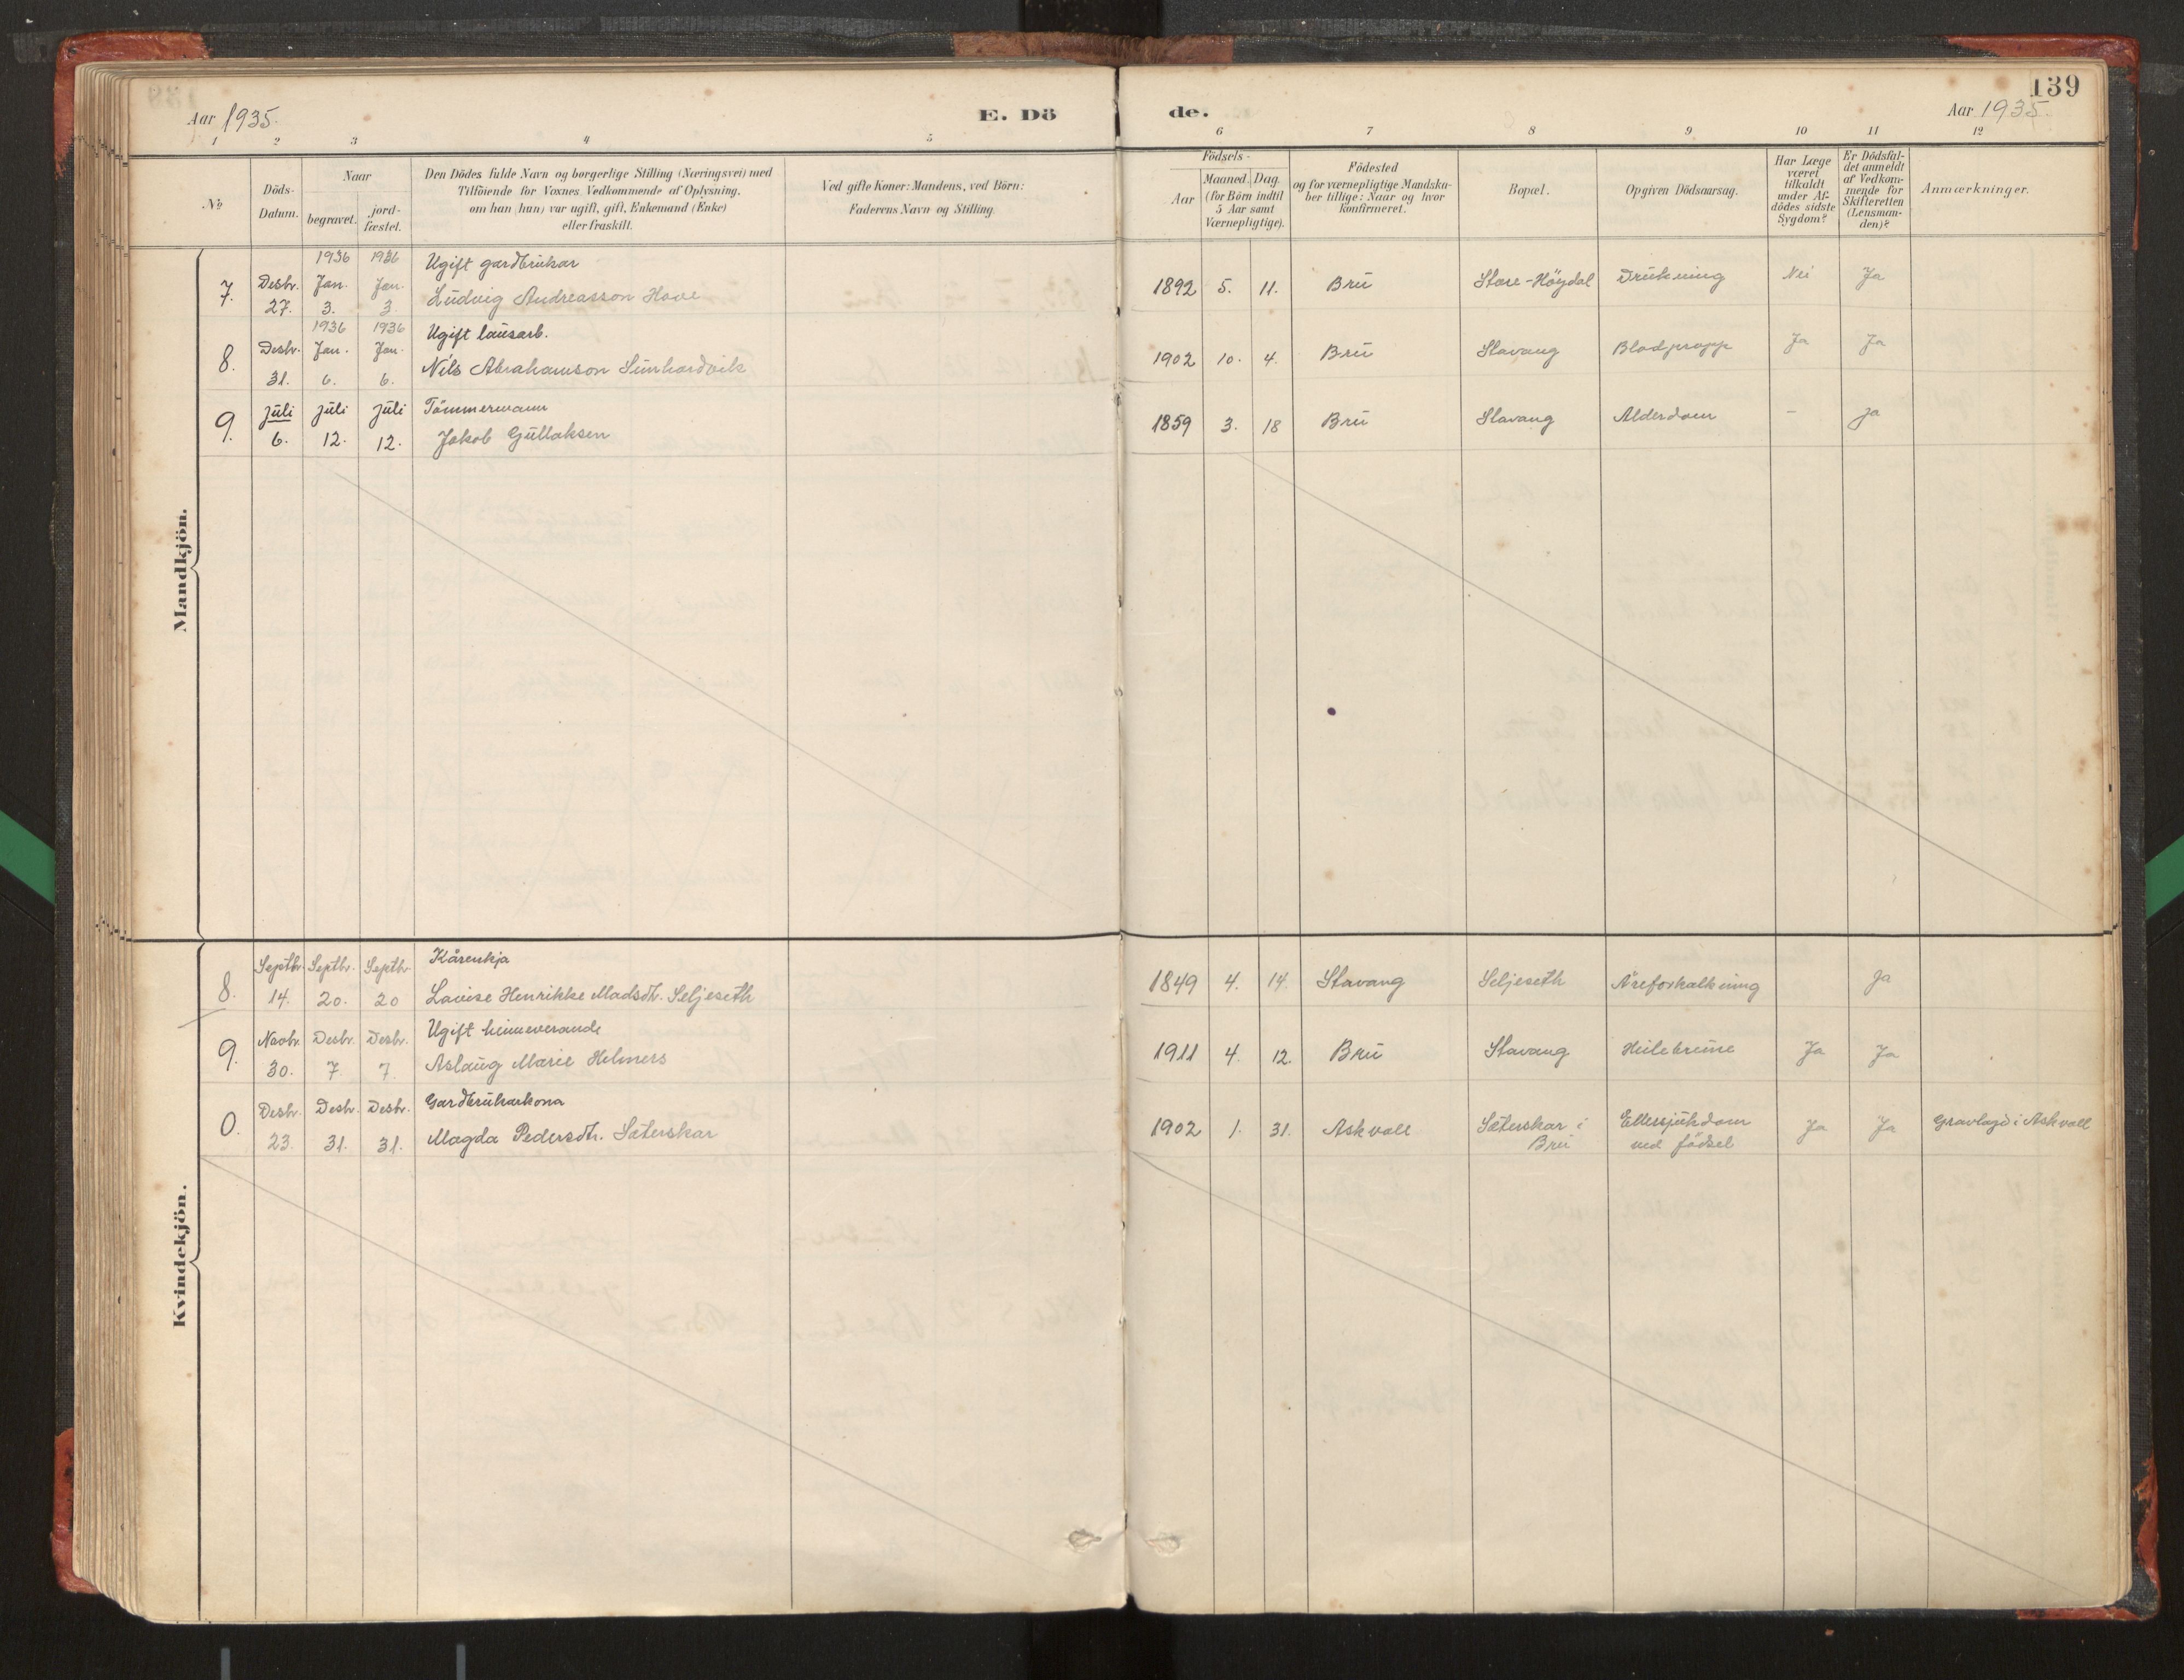 139
Aar 1935.
E. Dö
de.
Aar 1935.
1 2 3 4 5 6 7 8 9 10 11 12
No
Döds-
Datum.
Naar
begravet.
jord-
fæstet.
Den Dödes fulde Navn og borgerlige Stilling (Næringsvei) med
Tilföiende for Voxnes Vedkommende af Oplysning,
om han (hun) var ugift, gift, Enkemand (Enke)
eller fraskilt.
Ved gifte Koner: Mandens, ved Börn:
Faderens Navn og Stilling
Födsels-
Aar
Maaned. Dag.
(for Börn indtil
5 Aar samt
Værnepligtige).
Födested
og for værnepligtige Mandska-
ber tillige: Naar og hvor
konfirmeret.
Bopæl.
Opgiven Dödsaarsag.
Har Læge
været
tilkaldt
under Af-
dödes sidste
Sygdom?
Er Dödsfal-
det anmeldt
af Vedkom-
mende for
Skifteretten
(Lensman-
den)?
Anmærkninger.
Mandkjön.
1936 1936 Ugift gardbrukar
7. Desbr. Jan. Jan.
27. 3. 3. Ludvig Andreasson Hove 1892 5. 11. Bru Store-Höydal Drukning Nei Ja
1936 1936 Ugift lausarb.
8. Desbr. Jan. Jan.
31. 6. 6. Nils Abrahamson 1902 10. 4. Bru Stavang Blodpropp Ja Ja
9. juli juli juli Tömmermann
6. 12. 12. Jakob Gullaksen 1859 3. 18 Bru Stavang Alderdom - ja
Kvindekjön.
Septbr. Septbr. Septbr. Kårenkja
8. 14. 20. 20 Lovise Henrikke Madsdtr. Seljeseth 1849 4. 14. Stavang Seljeseth Åreforkalkning Ja
Novbr. Desbr. Desbr. Ugift heimeverande
9. 30. 7. 7. Aslaug Marie Helmers 1911 4. 12. Bru Stavang Heilebreune Ja Ja
Desbr. Desbr. Desbr. Gardbrukarkona
0. 23. 31. 31. Magda Pedersdtr. Sæterskar 1902 1. 31. Askvoll Sæterskar i Bru Ettersjukdom ved födsel Ja Ja Gravlagd i Askvoll